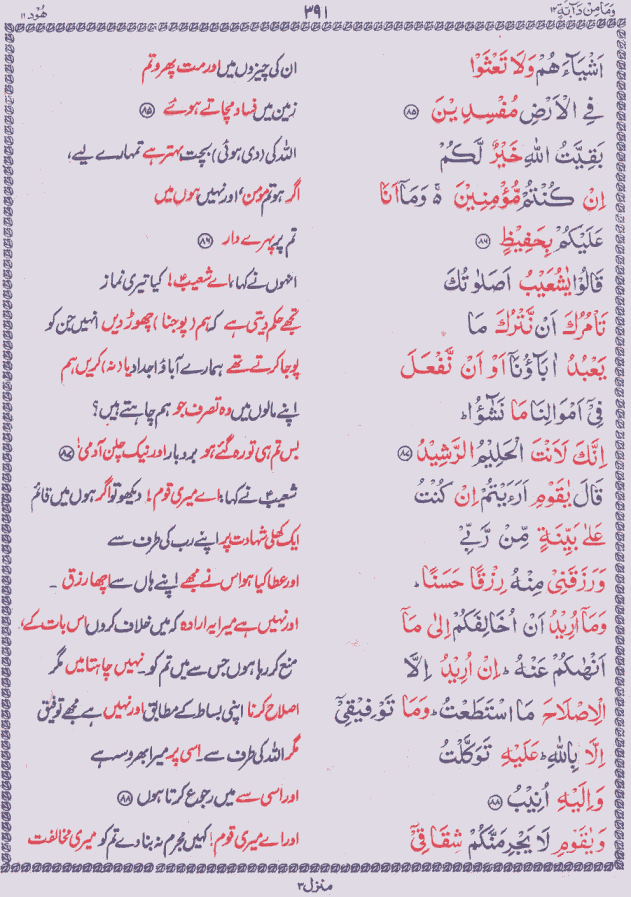 وَمَا مِنْ دَآبَّةٍ ١٢ ٣٩١ هُوْد ١١
اَشْيَآءَهُمْ وَلَا تَعْثَوْا ان کی چیزوں میں اور مت پھرو تم
فِي الْاَرْضِ مُفْسِدِيْنَ ٨٥ زمین میں فساد مچاتے ہوئے ٨٥
بَقِيَّتُ اللّٰهِ خَيْرٌ لَّكُمْ اللہ کی (دی ہوئی) بچت بہتر ہے تمہارے لیے،
اِنْ كُنْتُمْ مُّؤْمِنِيْنَ ۚ وَمَآ اَنَا اگر ہو تم مومن‘ اور نہیں ہوں میں
عَلَيْكُمْ بِحَفِيْظٍ ٨٦ تم پر پہرے دار ٨٦
قَالُوْا يٰشُعَيْبُ اَصَلٰوتُكَ انہوں نے کہا، اے شعیبؑ! کیا تیری نماز
تَاْمُرُكَ اَنْ نَّتْرُكَ مَا تجھے حکم دیتی ہے کہ ہم (پوجنا) چھوڑ دیں انہیں جن کو
يَعْبُدُ اٰبَآؤُنَآ اَوْ اَنْ نَّفْعَلَ پوجا کرتے تھے ہمارے آباؤ اجداد یا (نہ) کریں ہم
فِيْٓ اَمْوَالِنَا مَا نَشٰٓؤُا ؕ اپنے مالوں میں وہ تصرف جو ہم چاہتے ہیں؟
اِنَّكَ لَاَنْتَ الْحَلِيْمُ الرَّشِيْدُ ٨٧ بس تم ہی تو رہ گئے ہو بردبار اور نیک چلن آدمی! ٨٧
قَالَ يٰقَوْمِ اَرَءَيْتُمْ اِنْ كُنْتُ شعیبؑ نے کہا: اے میری قوم! دیکھو تو اگر ہوں میں قائم
عَلٰى بَيِّنَةٍ مِّنْ رَّبِّيْ ایک کھلی شہادت پر اپنے رب کی طرف سے
وَرَزَقَنِيْ مِنْهُ رِزْقًا حَسَنًا ؕ اور عطا کیا ہو اس نے مجھے اپنے ہاں سے اچھا رزق ۔
وَمَآ اُرِيْدُ اَنْ اُخَالِفَكُمْ اِلٰى مَآ اور نہیں ہے میرا یہ ارادہ کہ میں خلاف کروں اس بات کے،
اَنْهٰىكُمْ عَنْهُ ؕ اِنْ اُرِيْدُ اِلَّا منع کر رہا ہوں جس سے میں تم کو۔ نہیں چاہتا میں مگر
الْاِصْلَاحَ مَا اسْتَطَعْتُ ؕ وَمَا تَوْفِيْقِيْٓ اصلاح کرنا اپنی بساط کے مطابق اور نہیں ہے مجھے توفیق
اِلَّا بِاللّٰهِ ؕ عَلَيْهِ تَوَكَّلْتُ مگر اللہ کی طرف سے۔ اسی پر میرا بھروسہ ہے
وَاِلَيْهِ اُنِيْبُ ٨٨ اور اسی سے میں رجوع کرتا ہوں ٨٨
وَيٰقَوْمِ لَا يَجْرِمَنَّكُمْ شِقَاقِيْٓ اور اے میری قوم! کہیں مجرم نہ بنا دے تم کو میری مخالفت
منزل ٣